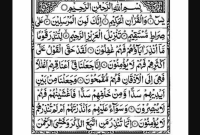 بِسْمِ اللهِ الرَّحْمٰنِ الرَّحِيْمِ
يٰسٓ وَالْقُرْاٰنِ الْحَكِيْمِ اِنَّكَ لَمِنَ الْمُرْسَلِيْنَ عَلٰى
صِرَاطٍ مُّسْتَقِيْمٍ تَنْزِيْلَ الْعَزِيْزِ الرَّحِيْمِ لِتُنْذِرَ قَوْمًا
مَّآ اُنْذِرَ اٰبَآؤُهُمْ فَهُمْ غٰفِلُوْنَ لَقَدْ حَقَّ الْقَوْلُ عَلٰٓى
اَكْثَرِهِمْ فَهُمْ لَا يُؤْمِنُوْنَ اِنَّا جَعَلْنَا فِيْٓ اَعْنَاقِهِمْ اَغْلٰلًا
فَهِيَ اِلَى الْاَذْقَانِ فَهُمْ مُّقْمَحُوْنَ وَجَعَلْنَا مِنْۢ بَيْنِ
اَيْدِيْهِمْ سَدًّا وَّمِنْ خَلْفِهِمْ سَدًّا فَاَغْشَيْنٰهُمْ فَهُمْ
لَا يُبْصِرُوْنَ وَسَوَآءٌ عَلَيْهِمْ ءَاَنْذَرْتَهُمْ اَمْ لَمْ تُنْذِرْهُمْ
لَا يُؤْمِنُوْنَ اِنَّمَا تُنْذِرُ مَنِ اتَّبَعَ الذِّكْرَ وَخَشِيَ الرَّحْمٰنَ